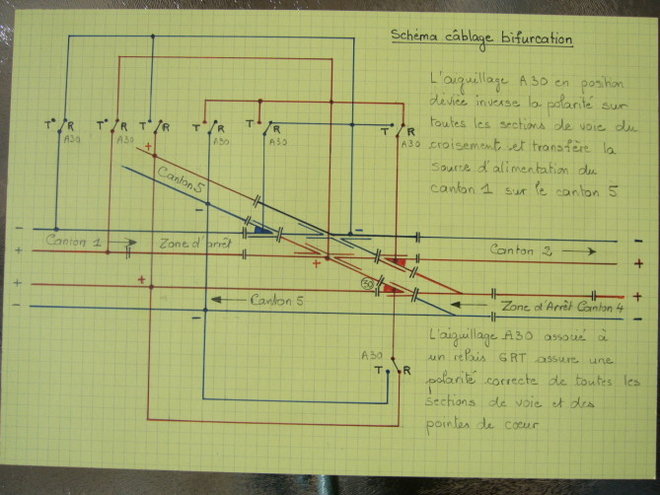 Schéma câblage bifurcation
L'aiguillage A30 en position
déviée inverse la polarité sur
toutes les sections de voie du
croisement et transfère la
source d'alimentation du
canton 1 sur le canton 5
T R T R T R T R T R T R
A30 A30 A30 A30 A30 A30
+
Canton 5
-
- - -
Canton 1 Zone d'arrêt Canton 2
+ + +
+ 30 +
+ Canton 5 Zone d'Arrêt Canton 4
- - -
L'aiguillage A30 associé à
un relais GRT assure une
polarité correcte de toutes les
sections de voie et des
pointes de cœur
A30
T R